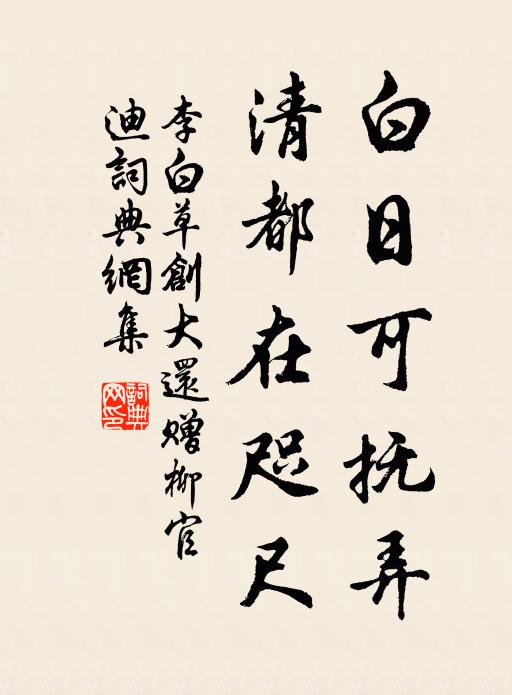 白日可抚弄
清都在咫尺
李白草創大還赠柳官
迪詞典網集
詞典網印